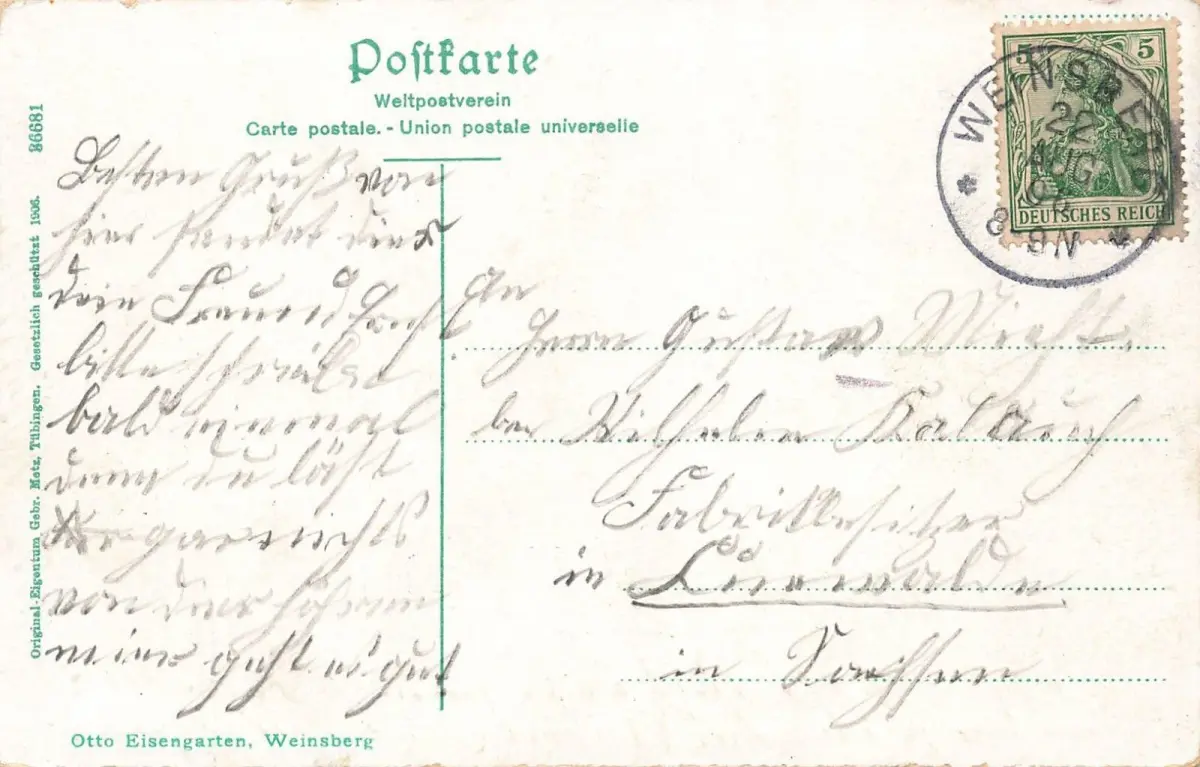 Postkarte
Weltpostverein
Carte postale. - Union postale universelle
86681
Original-Eigentum Gebr. Metz, Tübingen. Gesetzlich geschützt 1906.
5 5
DEUTSCHES REICH
22
AUG
8-9N
Besten Gruß von
hier sendet dir
dein Freund
bitte schreibe
bald einmal
denn du läßt
gar nichts
von dir hören
mir geht es gut
An
Herrn Gustav
bei Wilhelm Kalauch
Fabrikbesitzer
in
in Sachsen
Otto Eisengarten, Weinsberg